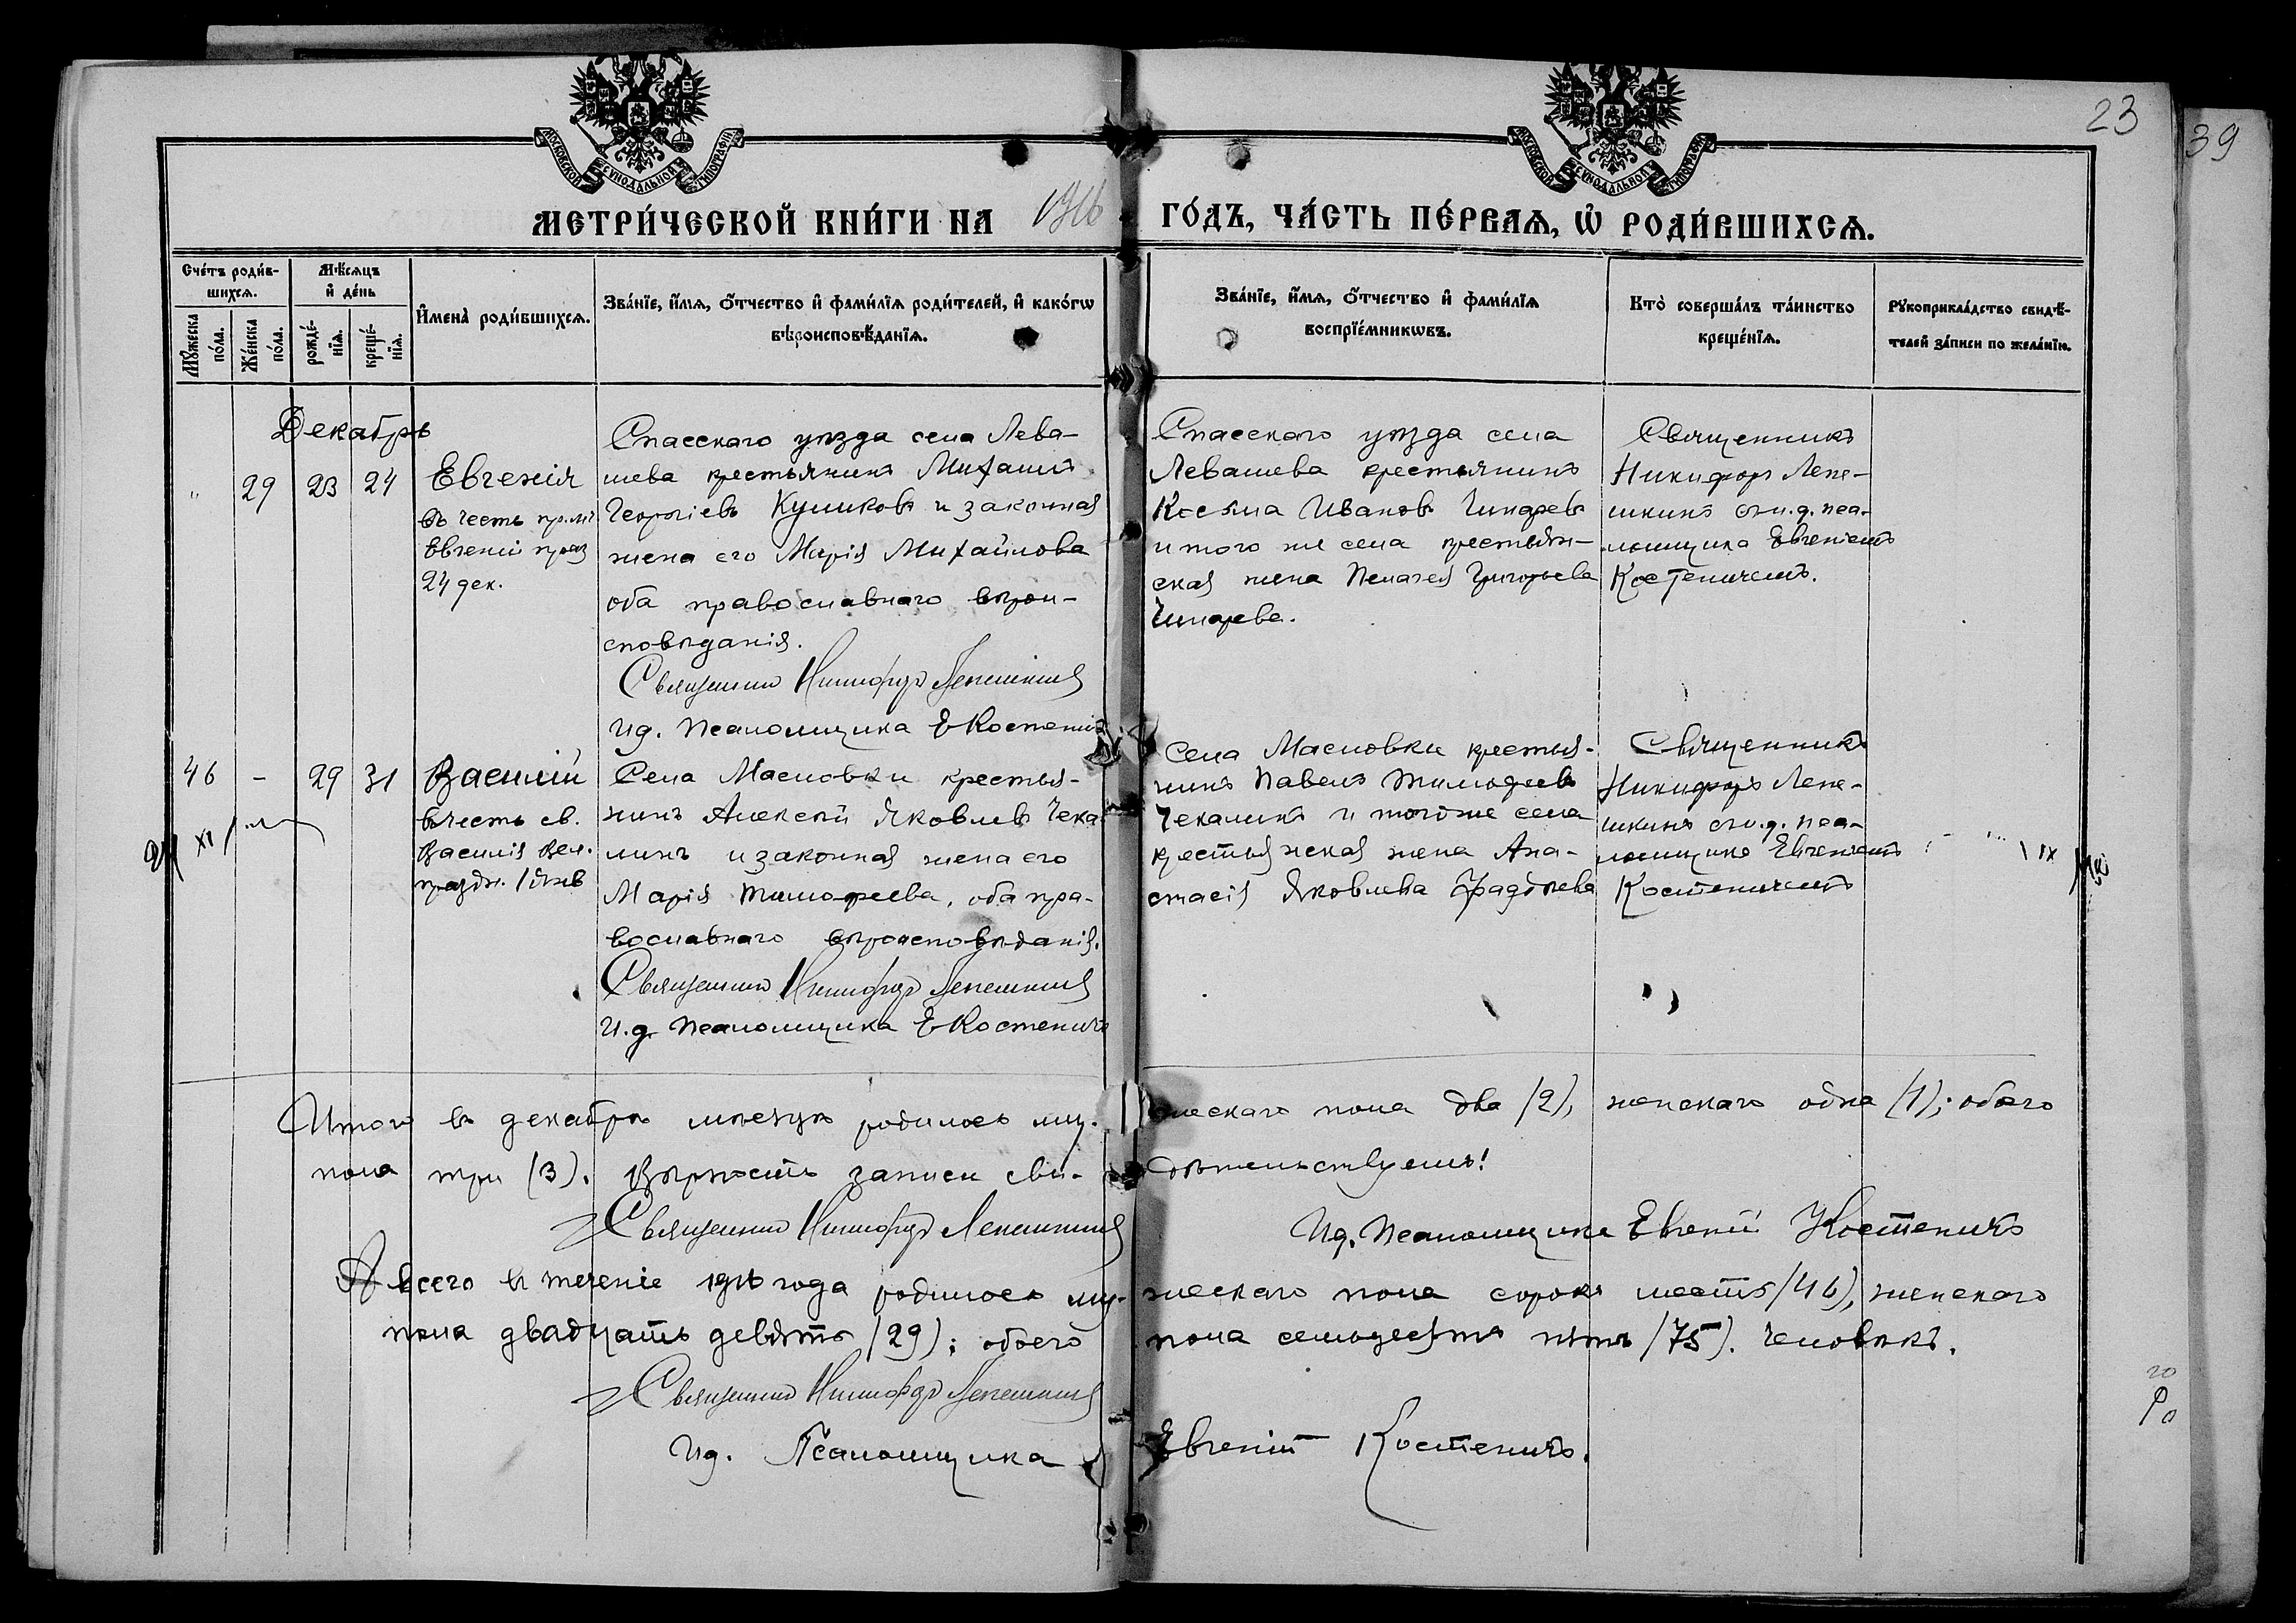 23
39
МОСКОВСКОЙ СѴНОДАЛЬНОЙ ТИПОГРАФІИ
МОСКОВСКОЙ СѴНОДАЛЬНОЙ ТИПОГРАФІИ
МЕТРИ́ЧЕСКОЙ КНИ́ГИ НА 1916 ГО́ДЪ, ЧА́СТЬ ПЕ́РВАѦ, Ѽ РОДИ́ВШИХСѦ.
Сче́тъ роди́в-
шихсѧ.
Мꙋ́жеска
по́ла.
Же́нска
по́ла.
Мѣ́сѧцъ
и҆ де́нь
рожде́-
нїѧ.
креще́-
нїѧ.
И҆мена̀ роди́вшихсѧ.
Зва́нїе, и҆́мѧ, ѻ҆́тчество и҆ фами́лїѧ роди́телей, и҆ како́гѡ
вѣроисповѣ́данїѧ.
Зва́нїе, и҆́мѧ, ѻ҆́тчество и҆ фами́лїѧ
воспрїе́мникѡвъ.
Кто̀ соверша́лъ та́инство
креще́нїѧ.
Рꙋкоприкла́дство свидѣ́-
телей за́писи по жела́нїю.
Декабрь
" 29 23 24
Евгенія
въ честь прмц
Евгеніи празд
24 дек.
Спасскаго уѣзда села Лева-
шева крестьянинъ Михаилъ
Георгіевъ Куликовъ и законная
жена его Марія Михайлова
оба православнаго вѣрои-
сповѣданія.
Священникъ Никифоръ Лепешкинъ
Ид. Псаломщика Е Костеничъ
Спасскаго уѣзда села
Левашева крестьянинъ
Косьма Ивановъ
и того же села крестьян-
ская жена Пелагея Григорьева
Священникъ
Никифоръ Лепе-
шкинъ съ и.д. пса-
ломщика Евгеніемъ
Костеничемъ.
46 - 29 31
Василій
въ честь св.
Василія Вел.
праздн. 1 янв
Села Масловки крестья-
нинъ Алексѣй Яковлевъ Чека-
линъ и законная жена его
Марія Тимофеева, оба пра-
вославнаго вѣроисповѣданія.
Священникъ Никифоръ Лепешкинъ
И.д. Псаломщика Е Костеничъ
Села Масловки крестья-
нинъ Павелъ Тимофеевъ
Чекалинъ и того же села
крестьянская жена Ана-
стасія Яковлева Фадѣева
Священникъ
Никифоръ Лепе-
шкинъ съ и.д. пса-
ломщика Евгеніемъ
Костеничемъ
Итого въ декабрѣ мѣсяцѣ родилось му-жескаго пола два (2), женскаго одна (1); обоего
пола три (3). Вѣрность записи сви-дѣтельствуемъ!
Священникъ Никифоръ Лепешкинъ
Ид. Псаломщика Евгеній Костеничъ
А всего въ теченіе 1916 года родилось му-жескаго пола сорокъ шесть (46), женскаго
пола двадцать девять (29); обоего пола семьдесятъ пять (75). человѣкъ.
Священникъ Никифоръ Лепешкинъ
Ид. Псаломщика Евгеній Костеничъ.